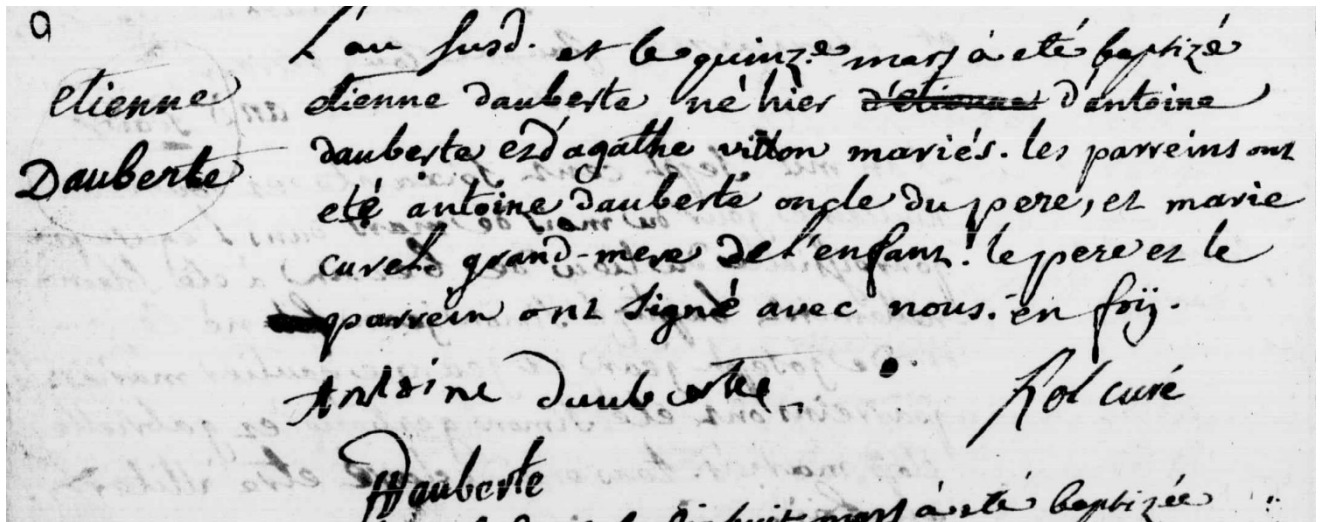 etienne
Dauberte
L'an susd. et le quinze mars à eté baptizé
etienne dauberte né hier d'etienne d'antoine
dauberte et d'agathe vitton mariés. les parreins ont
eté antoine dauberte oncle du pere, et marie
curel grand-mere de l'enfant! le pere et le
parrein ont signé avec nous. en foÿ.
Antoine dauberte
Rol curé
Dauberte
huit mars à eté baptizée